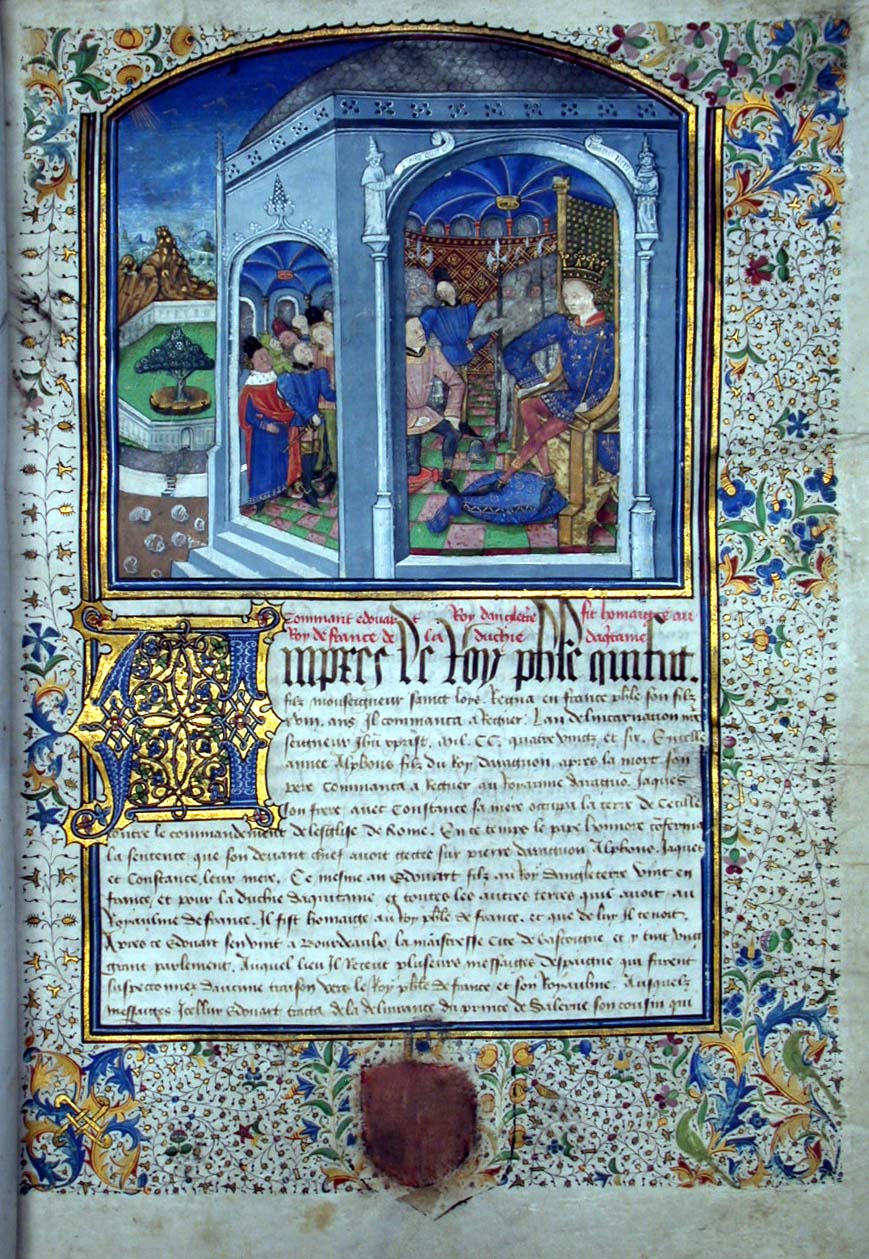 Commant edouart Roy dangleterre fit hommaige au
Roy de france de la duchie dacqtaine
Apres le Roy phle quint
filz monseigneur sainct loys. Regna en france phle son filz
xviii. ans Il commanca a Regner. Lan de lincarnacion nre
seigneur Ihu xprist. mil. CC. quatre vingtz et six. En celle
annee Alphons filz du Roy darragon, apres la mort son
pere commanca a Regner au Royaume darragon. Jaques
son frere avec Constance sa mere occupa la terre de Cecille
contre le commandement de leglise de Rome. En ce temps le pape honnore conferma
la sentence que son devant chief avoit gectee sur pierre darragon Alphons. Jaques
et Constance, leur mere, Ce mesme an Edouart filz au Roy dangleterre vint en
france, et pour la duchie daquitaine et toutes les autres terres quil avoit au
Royaulme de france. Il fist homaige au Roy phle de france. et que de luy Il tenoit.
Apres ce Edouart sen vint a Bourdeaulx, la maistresse cite de Gascoigne et y tint ung
grant parlement. Auquel lieu Il Receut plusieurs messaiges despaigne, qui furent
suspeconnez daucune traison vers le Roy phle de france et son Royaulme. Ausquelz
messaiges Icelluy Edouart traicta de la delivrance du prince de Salerne son cousin qui